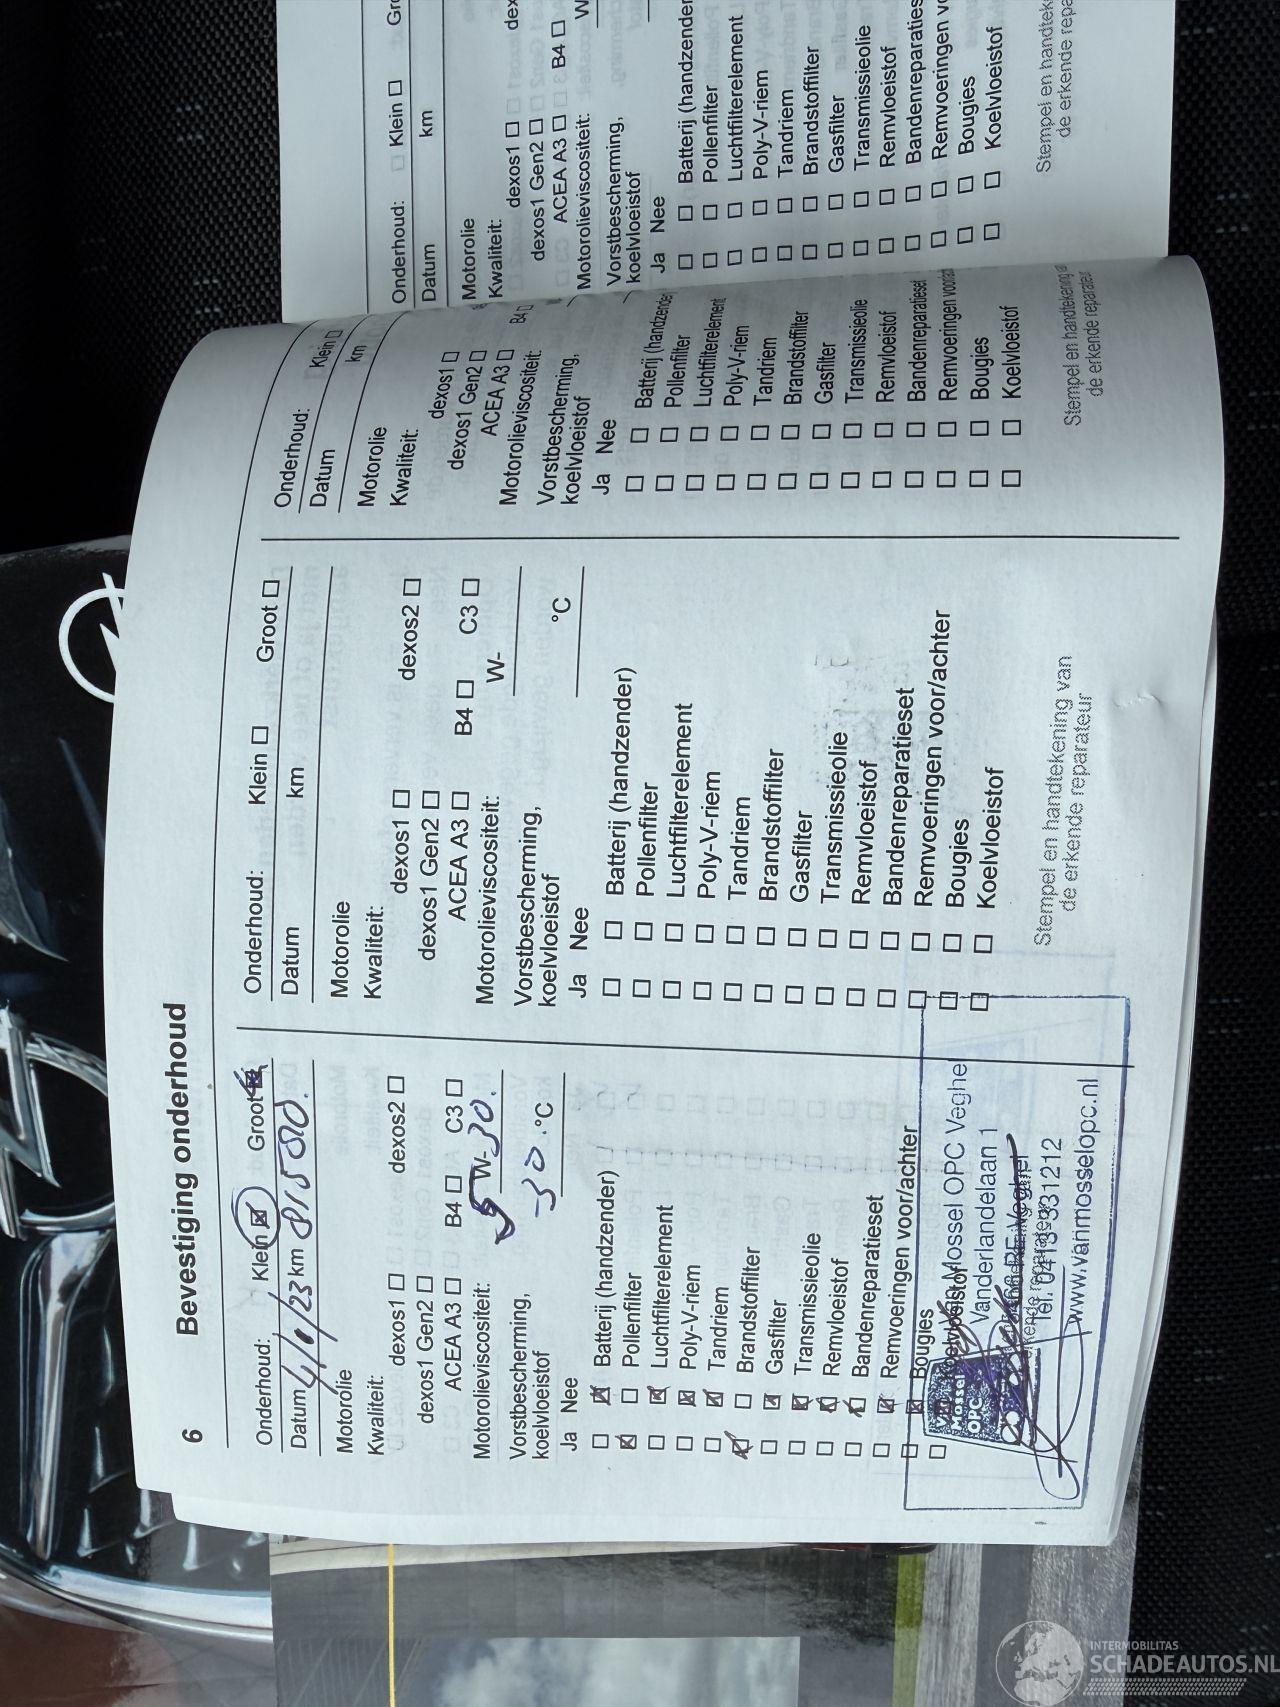 6 Bevestiging onderhoud
Onderhoud: Klein ☒ Groot
Datum 4/1/23 km 81500.
Motorolie
Kwaliteit:
dexos1 ☐ dexos2 ☐
dexos1 Gen2 ☐
ACEA A3 ☐ B4 ☐ C3 ☐
Motorolieviscositeit: 5 W- 30.
Vorstbescherming,
koelvloeistof -30. °C
Ja Nee
☐ ☒ Batterij (handzender)
☒ ☐ Pollenfilter
☐ ☒ Luchtfilterelement
☐ ☒ Poly-V-riem
☐ ☒ Tandriem
☒ ☐ Brandstoffilter
☐ ☒ Gasfilter
☐ ☒ Transmissieolie
☐ ☒ Remvloeistof
☐ ☒ Bandenreparatieset
☐ ☒ Remvoeringen voor/achter
☐ ☒ Bougies
☐ ☒ Koelvloeistof
Mossel OPC Veghel
Vanderlandelaan 1
Veghel
Tel. 0413-331212
www.vanmosselopc.nl
Mossel
OPC
Onderhoud: Klein ☐ Groot ☐
Datum km
Motorolie
Kwaliteit:
dexos1 ☐ dexos2 ☐
dexos1 Gen2 ☐
ACEA A3 ☐ B4 ☐ C3 ☐
Motorolieviscositeit: W-
Vorstbescherming,
koelvloeistof °C
Ja Nee
☐ ☐ Batterij (handzender)
☐ ☐ Pollenfilter
☐ ☐ Luchtfilterelement
☐ ☐ Poly-V-riem
☐ ☐ Tandriem
☐ ☐ Brandstoffilter
☐ ☐ Gasfilter
☐ ☐ Transmissieolie
☐ ☐ Remvloeistof
☐ ☐ Bandenreparatieset
☐ ☐ Remvoeringen voor/achter
☐ ☐ Bougies
☐ ☐ Koelvloeistof
Stempel en handtekening van
de erkende reparateur
Onderhoud: Klein ☐
Datum km
Motorolie
Kwaliteit:
dexos1 ☐
dexos1 Gen2 ☐
ACEA A3 ☐ B4 ☐
Motorolieviscositeit:
Vorstbescherming,
koelvloeistof
Ja Nee
☐ ☐ Batterij (handzender
☐ ☐ Pollenfilter
☐ ☐ Luchtfilterelement
☐ ☐ Poly-V-riem
☐ ☐ Tandriem
☐ ☐ Brandstoffilter
☐ ☐ Gasfilter
☐ ☐ Transmissieolie
☐ ☐ Remvloeistof
☐ ☐ Bandenreparatieset
☐ ☐ Remvoeringen
☐ ☐ Bougies
☐ ☐ Koelvloeistof
Stempel en handtekening
de erkende reparateur
Onderhoud: ☐ Klein ☐ Gr
Datum km
Motorolie
Kwaliteit:
dexos1 ☐ dex
dexos1 Gen2 ☐
ACEA A3 ☐ B4 ☐
Motorolieviscositeit: W
Vorstbescherming,
koelvloeistof
Ja Nee
☐ ☐ Batterij (handzender
☐ ☐ Pollenfilter
☐ ☐ Luchtfilterelement
☐ ☐ Poly-V-riem
☐ ☐ Tandriem
☐ ☐ Brandstoffilter
☐ ☐ Gasfilter
☐ ☐ Transmissieolie
☐ ☐ Remvloeistof
☐ ☐ Bandenreparaties
☐ ☐ Remvoeringen v
☐ ☐ Bougies
☐ ☐ Koelvloeistof
Stempel en handtek
de erkende repa
INTERMOBILITAS
SCHADEAUTOS.NL